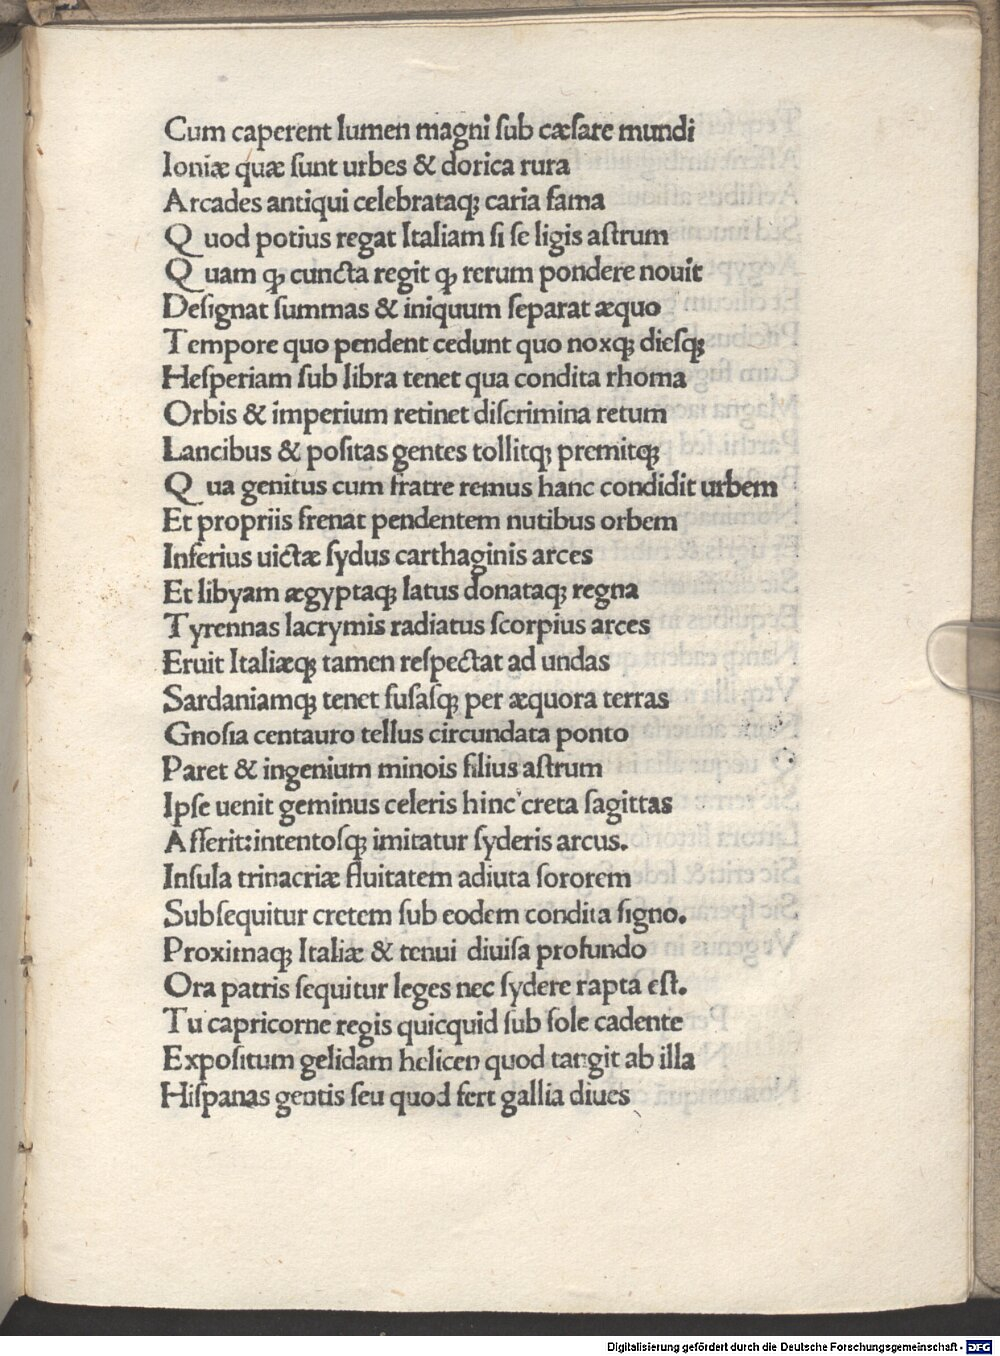 Cum caperent lumen magni ſub cæſare mundi
Ioniæ quæ ſunt urbes & dorica rura
Arcades antiqui celebrataqꝫ caria fama
Quod potius regat Italiam ſi ſe ligis aſtrum
Quam ꝙ cuncta regit ꝙ rerum pondere nouit
Deſignat ſummas & iniquum ſeparat æquo
Tempore quo pendent cedunt quo noxqꝫ dieſqꝫ
Heſperiam ſub libra tenet qua condita rhoma
Orbis & imperium retinet diſcrimina retum
Lancibus & poſitas gentes tollitqꝫ premitqꝫ
Qua genitus cum fratre remus hanc condidit urbem
Et propriis frenat pendentem nutibus orbem
Inferius uictæ ſydus carthaginis arces
Et libyam ægyptaqꝫ latus donataqꝫ regna
Tyrennas lacrymis radiatus ſcorpius arces
Eruit Italiæqꝫ tamen reſpectat ad undas
Sardaniamqꝫ tenet fuſaſqꝫ per æquora terras
Gnoſia centauro tellus circundata ponto
Paret & ingenium minois filius aſtrum
Ipſe uenit geminus celeris hinc creta ſagittas
Aſſerit:intentoſqꝫ imitatur ſyderis arcus.
Inſula trinacriæ fluitatem adiuta ſororem
Subſequitur cretem ſub eodem condita ſigno.
Proximaqꝫ Italiæ & tenui diuiſa profundo
Ora patris ſequitur leges nec ſydere rapta eſt.
Tu capricorne regis quicquid ſub ſole cadente
Expoſitum gelidam helicen quod tangit ab illa
Hiſpanas gentis ſeu quod fert gallia diues
Digitalisierung gefördert durch die Deutsche Forschungsgemeinschaft - DFG